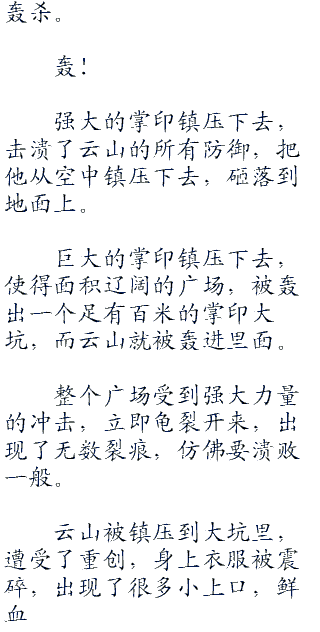 轰杀。
轰！
强大的掌印镇压下去，
击溃了云山的所有防御，把
他从空中镇压下去，砸落到
地面上。
巨大的掌印镇压下去，
使得面积辽阔的广场，被轰
出一个足有百米的掌印大
坑，而云山就被轰进里面。
整个广场受到强大力量
的冲击，立即龟裂开来，出
现了无数裂痕，仿佛要溃败
一般。
云山被镇压到大坑里，
遭受了重创，身上衣服被震
碎，出现了很多小上口，鲜
血